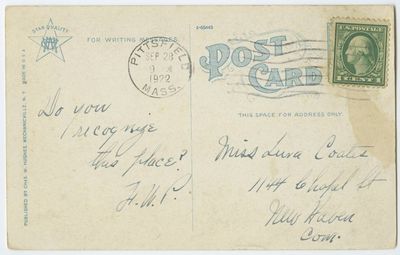 STAR QUALITY
MADE IN U.S.A.
PUBLISHED BY CHAS. W. HUGHES, MECHANICVILLE, N. Y.
FOR WRITING MESSAGES
PITTSFIELD
SEP 28
1922
MASS.
POST
CARD
U.S. POSTAGE
1 CENT 1
THIS SPACE FOR ADDRESS ONLY
Do you
recognize
this place?
H. W. P.
Miss Lura Coates
1144 Chapel St
New Haven
Com.